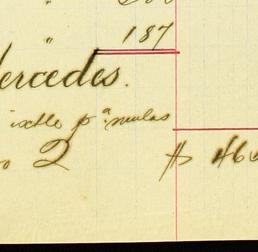 " 187
Mercedes.
ixtle pª mulas
2 $ 46